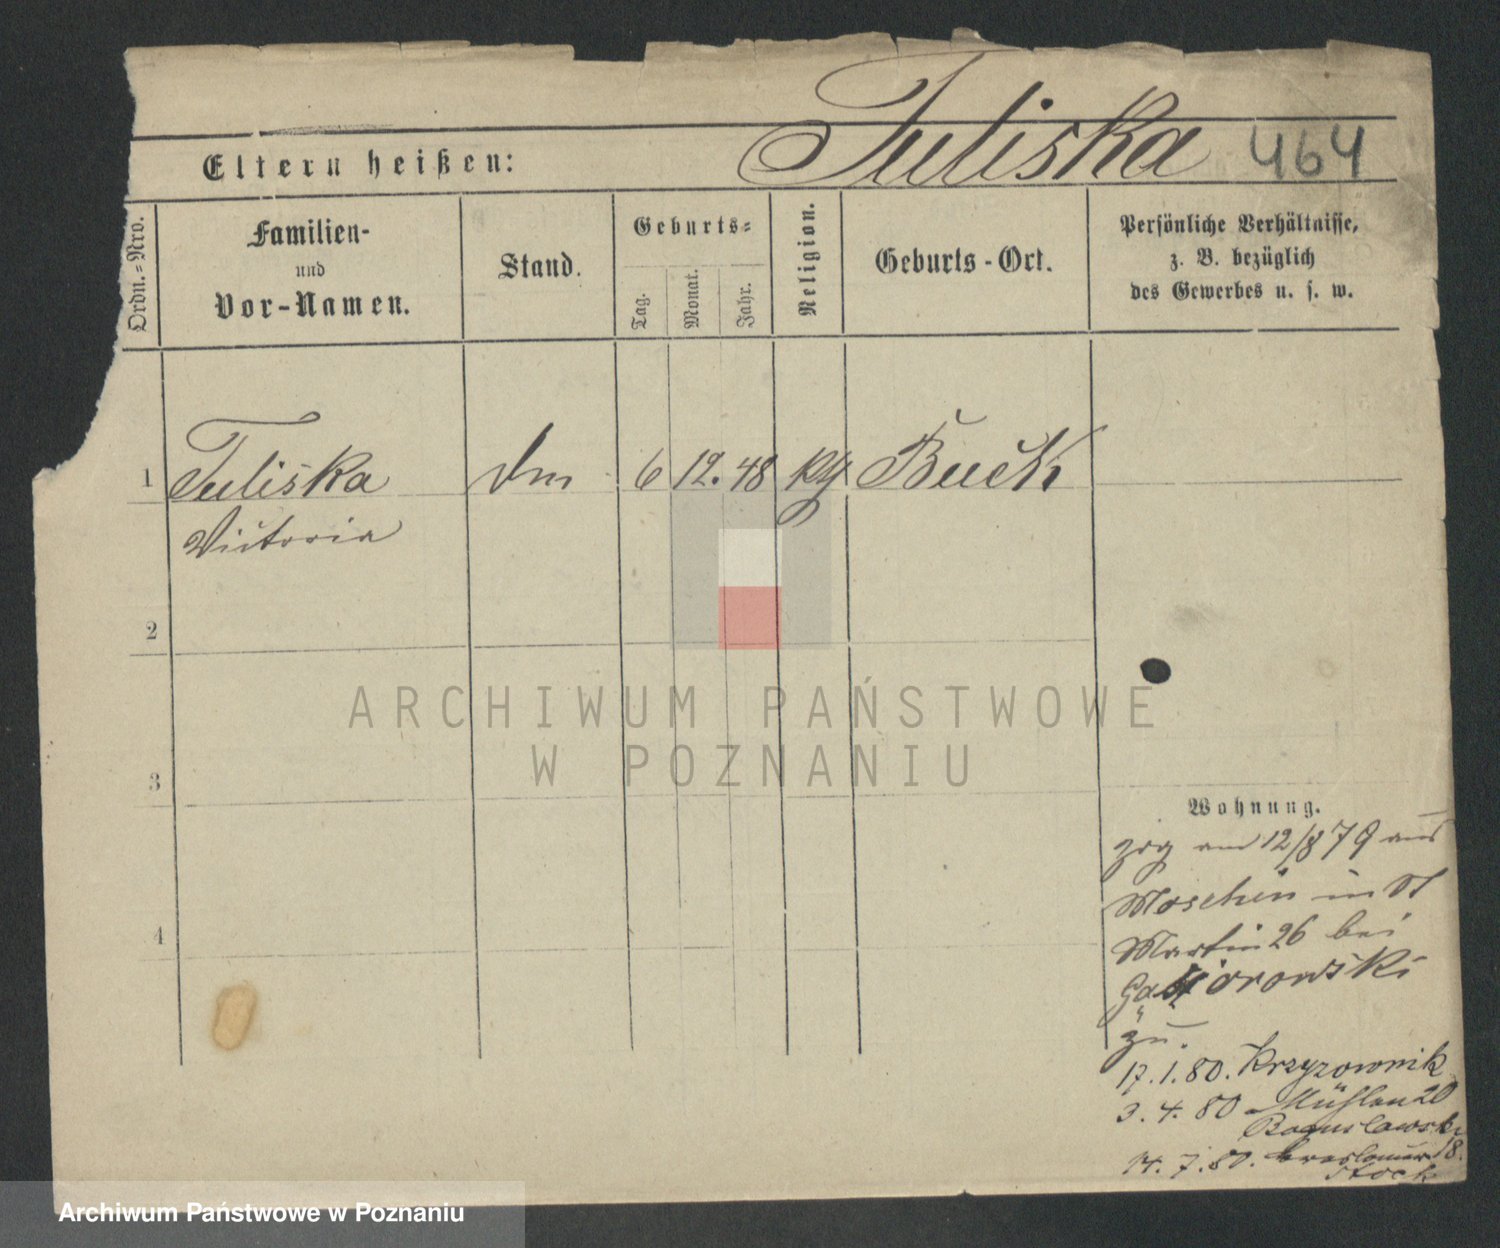 Tuliska 464
Eltern heißen:
Ordn.=Nro.
Familien-
und
Vor-Namen.
Stand.
Geburts=
Tag.
Monat.
Jahr.
Religion.
Geburts-Ort.
Persönliche Verhältnisse,
z. B. bezüglich
des Gewerbes u. s. w.
1 Tuliska Dm 6 12. 48 Kg Buck
Victoria
2
3
4
ARCHIWUM PAŃSTWOWE
W POZNANIU
Wohnung.
zog am 12/8 79 aus
Moschin in St
Martin 26 bei
Gasiorowski
zu.
17. 1. 80. Krzyzownik
3. 4. 80 Mühlen 20
Boguslawski
14. 7. 80. Breslauer 18.
Stock
Archiwum Państwowe w Poznaniu